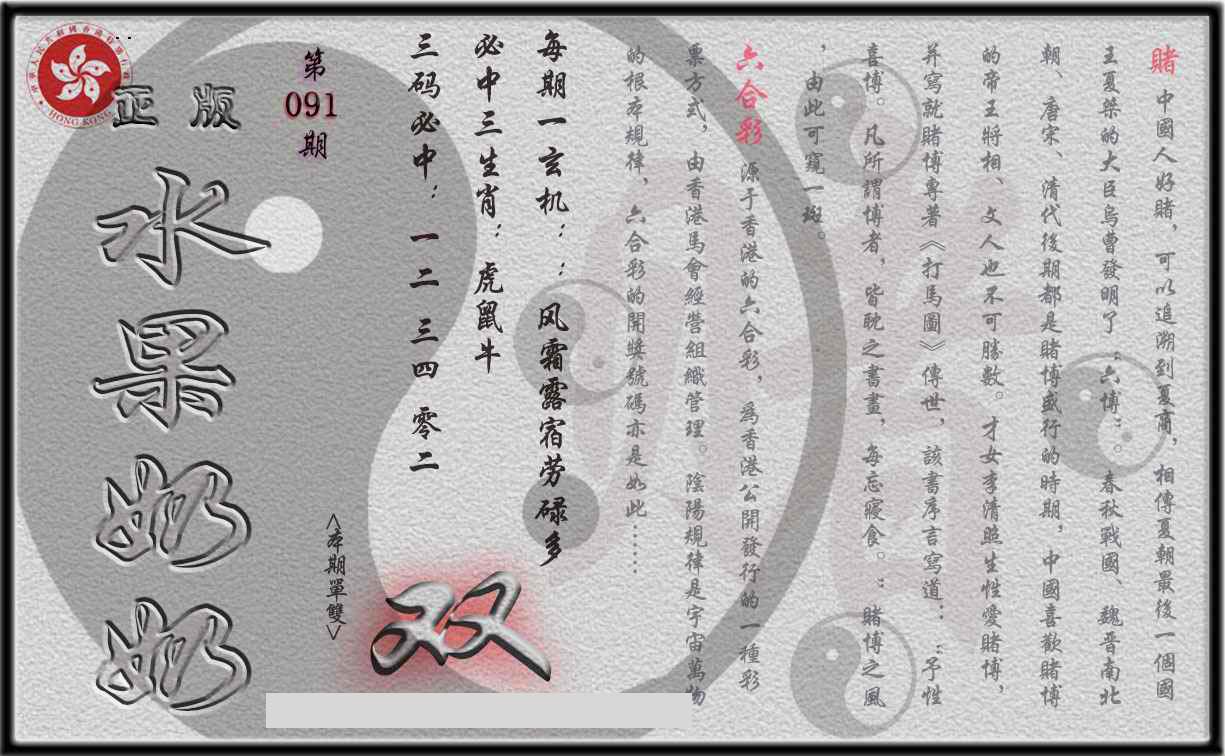 賭 中國人好賭，可以追溯到夏商，相傳夏朝最後一個國
王夏桀的大臣烏曹發明了：六博：。春秋戰國、魏晉南北
朝、唐宋、清代後期都是賭博盛行的時期，中國喜歡賭博
的帝王將相、文人也不可勝數。才女李清照生性愛賭博，
并寫就賭博專著《打馬圖》傳世，該書序言寫道：：予性
喜博。凡所謂博者，皆耽之書晝，每忘寢食。：賭博之風
，由此可窺一斑。
六合彩 源于香港的六合彩，為香港公開發行的一種彩
票方式，由香港馬會經營組織管理。陰陽規律是宇宙萬物
的根本規律，六合彩的開獎號碼亦是如此……
每期一玄机：：风霜露宿劳碌多
必中三生肖：虎鼠牛
三码必中：一二三四零二
第
091
期
<本期單雙>
双
正版
水果奶奶
HONG KONG